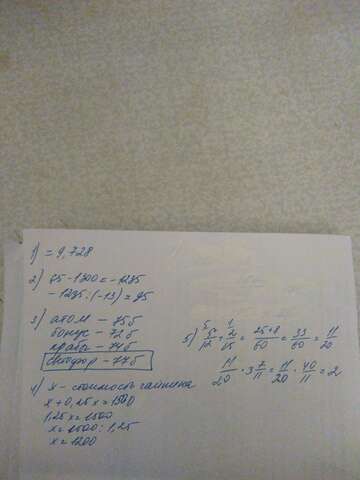 1) = 9,728
2) 65 - 1300 = - 1235
- 1235 : (-13) = 95
3) атом - 75б
бонус - 72б
крабы - 74б
светофор - 77б
4) x - стоимость чайника
x + 0,25x = 1500
1,25x = 1500
x = 1500 : 1,25
x = 1200
5) 5/12 + 2/15 = 25+8/60 = 33/60 = 11/20
11/20 · 3 7/11 = 11/20 · 40/11 = 2